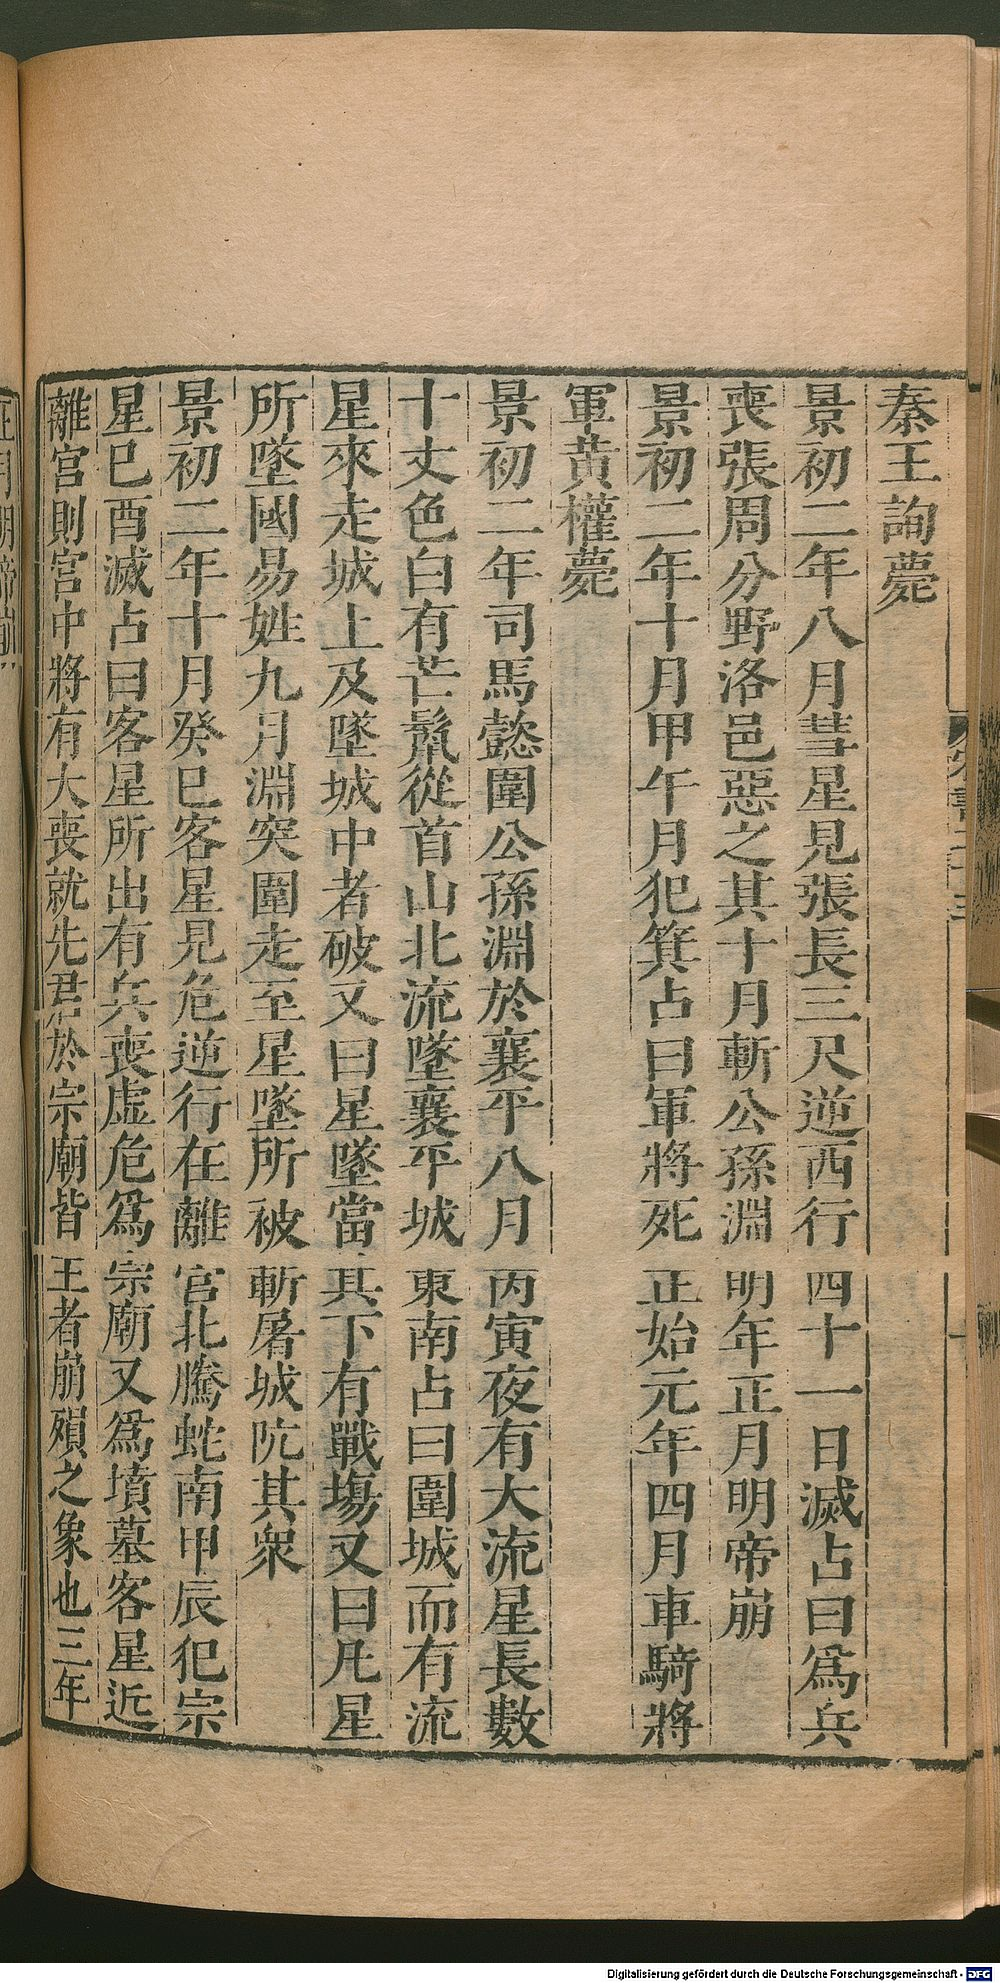 秦王詢薨
景初二年八月彗星見張長三尺逆西行四十一日滅占曰爲兵
喪張周分野洛邑惡之其十月斬公孫淵明年正月明帝崩
景初二年十月甲午月犯箕占曰軍將死正始元年四月車騎將
軍黄權薨
景初二年司馬懿圍公孫淵於襄平八月丙寅夜有大流星長數
十丈色白有芒鬣從首山北流墜襄平城東南占曰圍城而有流
星來走城上及墜城中者破又曰星墜當其下有戰塲又曰凡星
所墜國易姓九月淵突圍走至星墜所被斬屠城阬其衆
景初二年十月癸巳客星見危逆行在離宫北騰蛇南甲辰犯宗
星己酉滅占曰客星所出有兵喪虚危爲宗廟又爲墳墓客星近
離宫則宫中將有大喪就先君於宗廟皆王者崩殞之象也三年
正月明帝崩
Digitalisierung gefördert durch die Deutsche Forschungsgemeinschaft - DFG